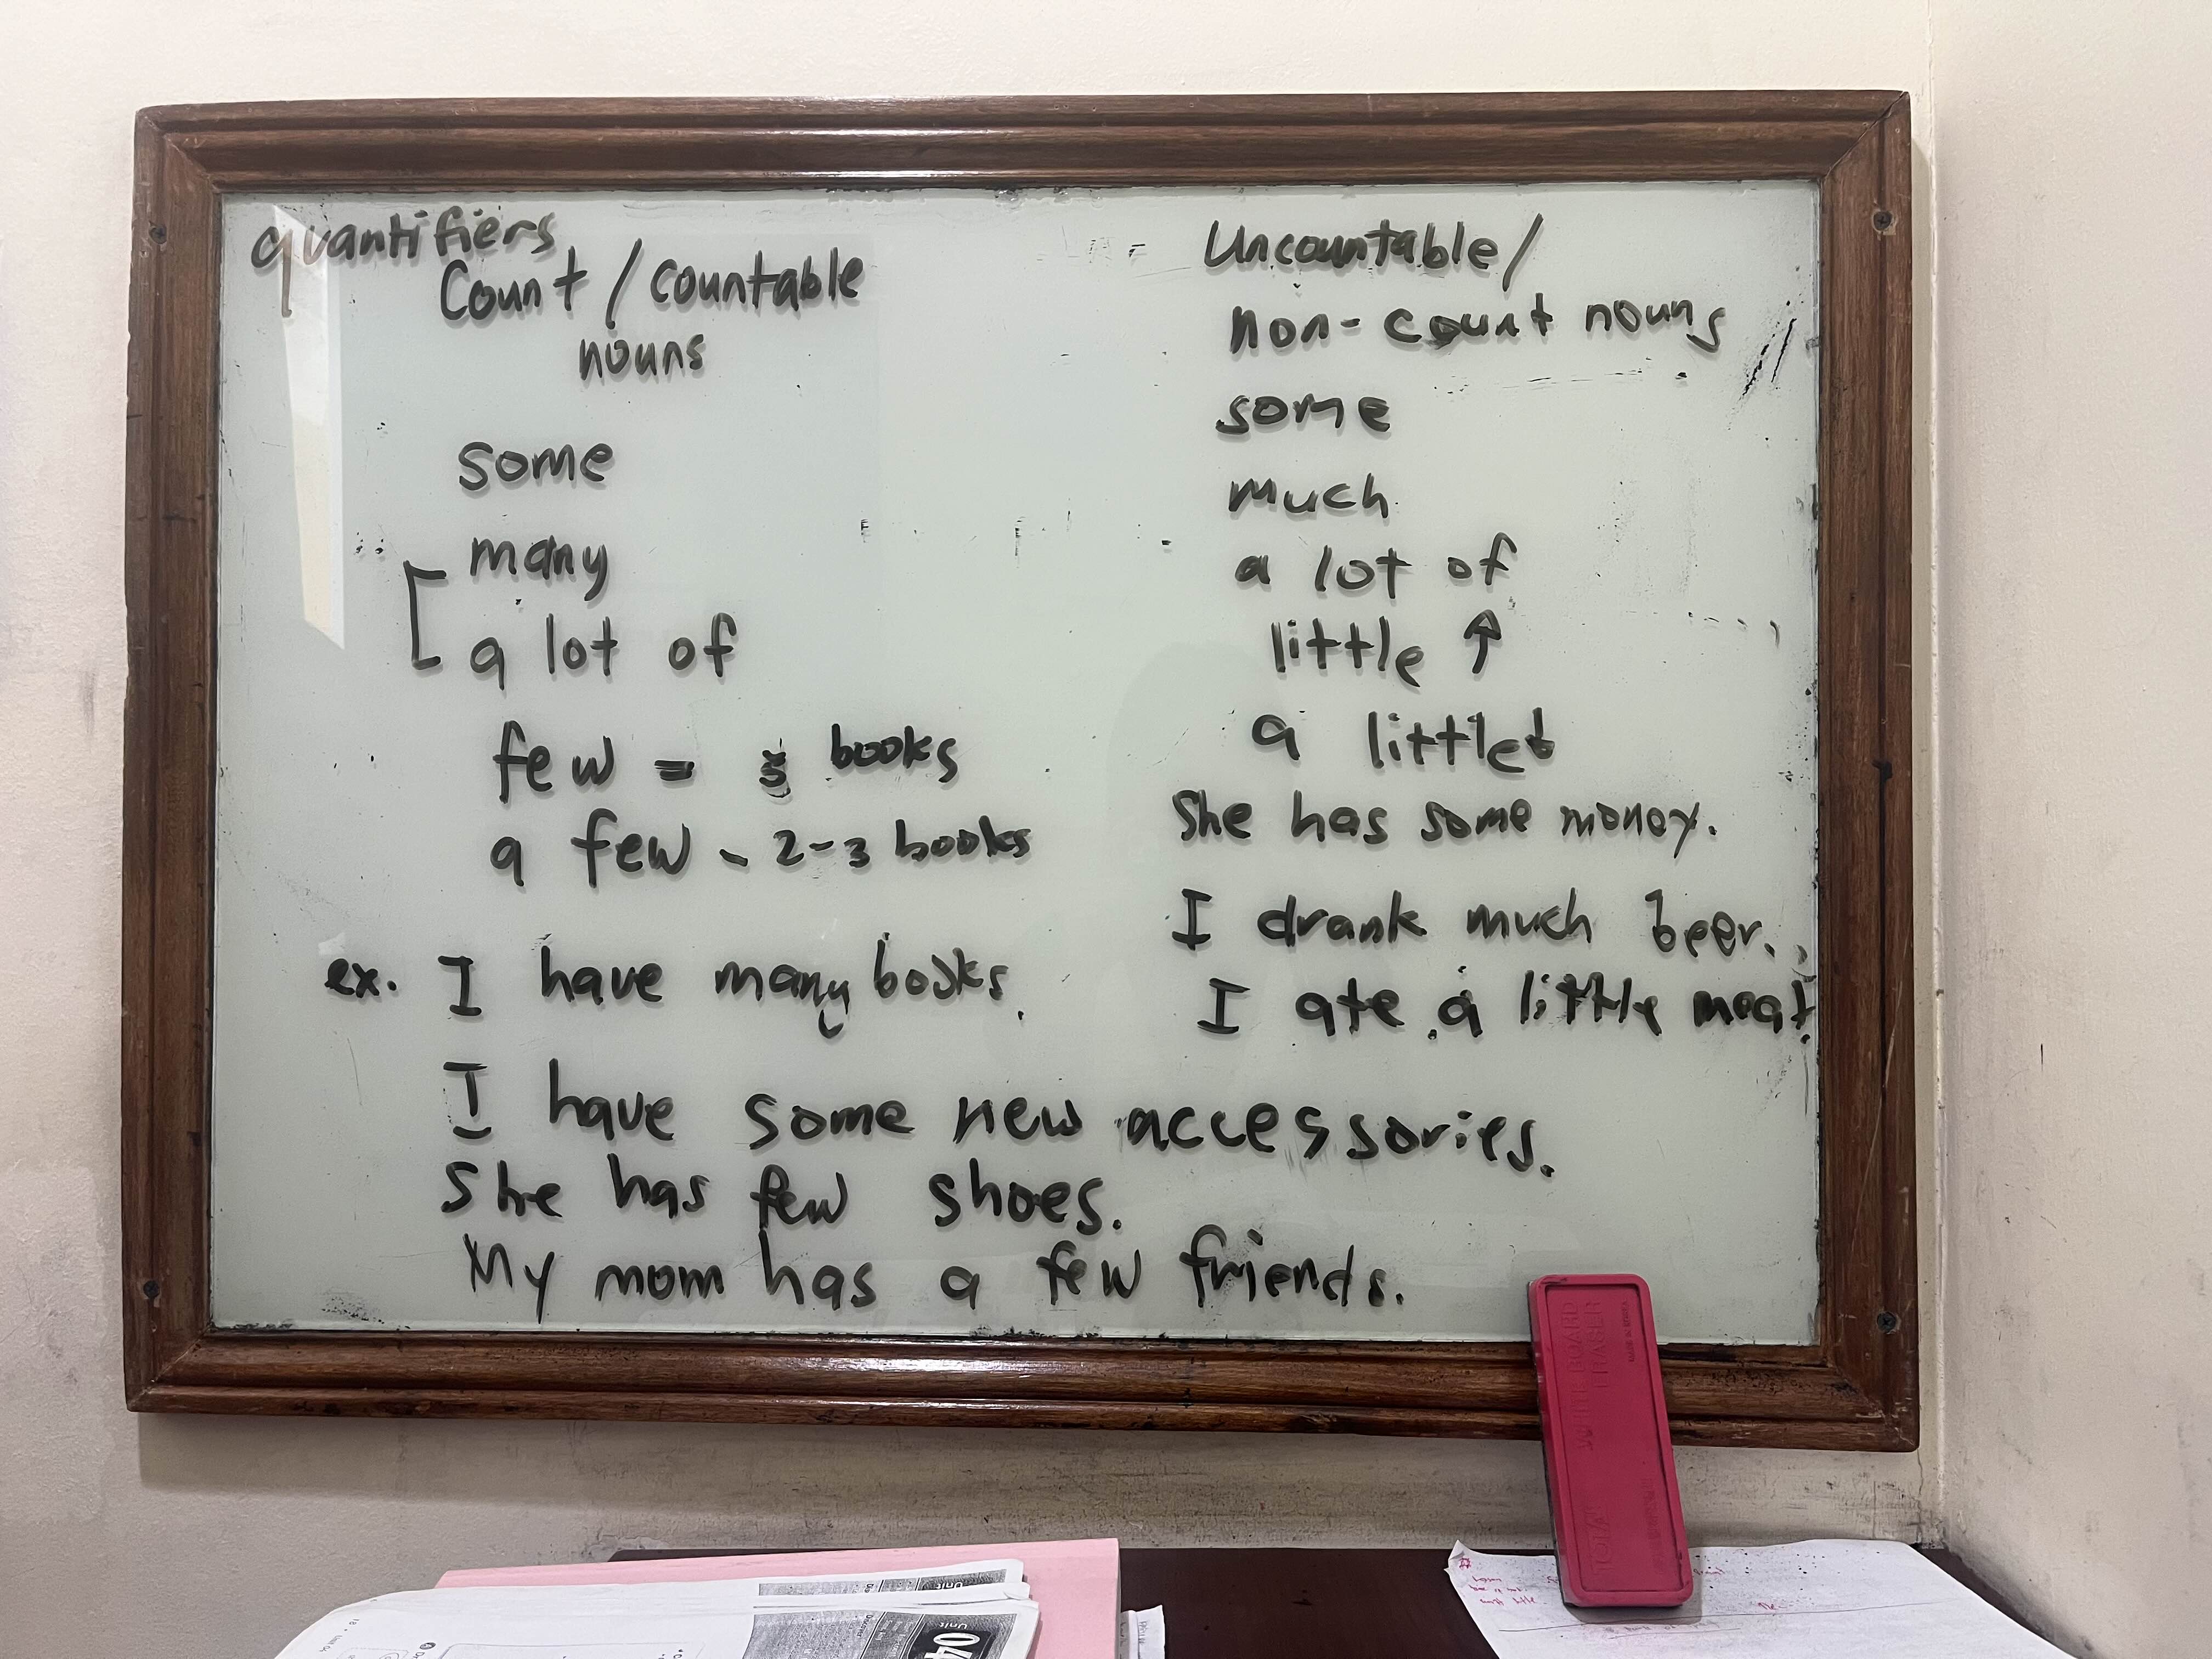 quantifiers
Count / countable
nouns
some
many
a lot of
few = books
a few - 2-3 books
ex. I have many books.
I have some new accessories.
She has few shoes.
My mom has a few friends.
Uncountable/
non-count nouns
some
much
a lot of
little ↑
a little
She has some money.
I drank much beer.
I ate a little meat.
WHITE BOARD
ERASER
Unit
04